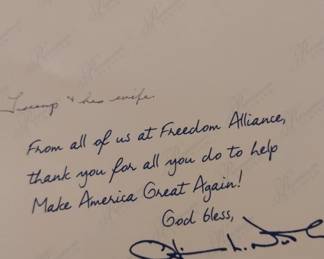 Trump & his wife
From all of us at Freedom Alliance,
thank you for all you do to help
Make America Great Again!
God bless,